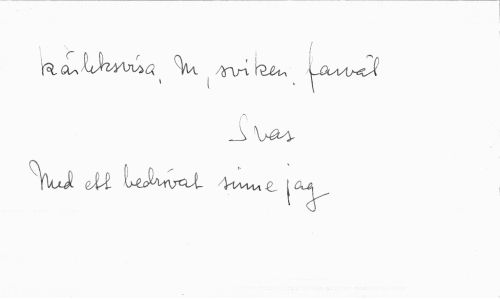 Kärleksvisa, M, sviken, farväl
Svas
Med ett bedrövat sinne jag